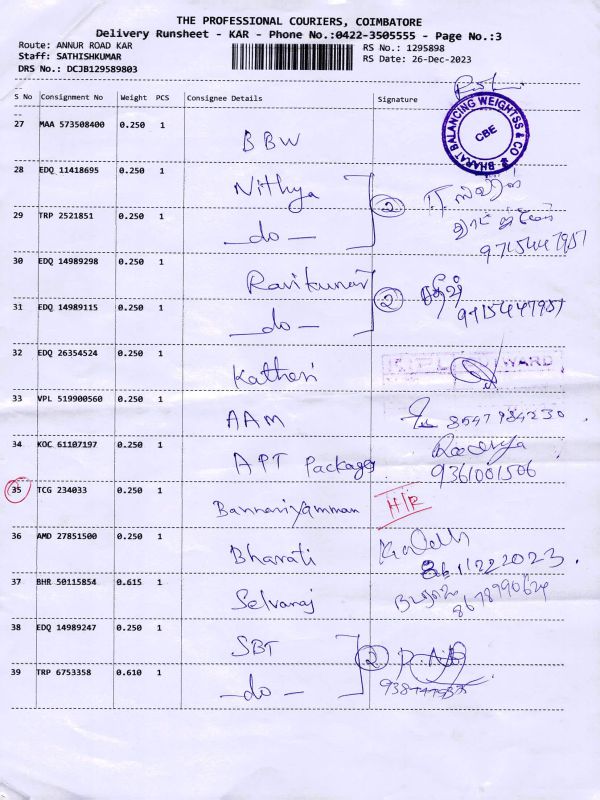 THE PROFESSIONAL COURIERS, COIMBATORE
Delivery Runsheet - KAR - Phone No.:0422-3505555 - Page No.:3
Route: ANNUR ROAD KAR
RS No.: 1295898
Staff: SATHISHKUMAR
RS Date: 26-Dec-2023
DRS No.: DCJB129589803
S No Consignment No Weight PCS Consignee Details Signature
BHARAT BALANCING WEIGHTSS & CO
CBE
27 MAA 573508400 0.250 1 BBW
28 EDQ 11418695 0.250 1 Nithya
2
29 TRP 2521851 0.250 1 do
9715447957
30 EDQ 14989298 0.250 1 Ravikumar
2
31 EDQ 14989115 0.250 1 do
9715447957
32 EDQ 26354524 0.250 1 Katheri
33 VPL 519900560 0.250 1 AAM 8547984230
34 KOC 61107197 0.250 1 APT Packages
9361001506
35 TCG 234033 0.250 1 Bannariyamman H/R
36 AMD 27851500 0.250 1 Bharati
37 BHR 50115854 0.615 1 Selvaraj 8678990624
38 EDQ 14989247 0.250 1 SBT
2
39 TRP 6753358 0.610 1 do